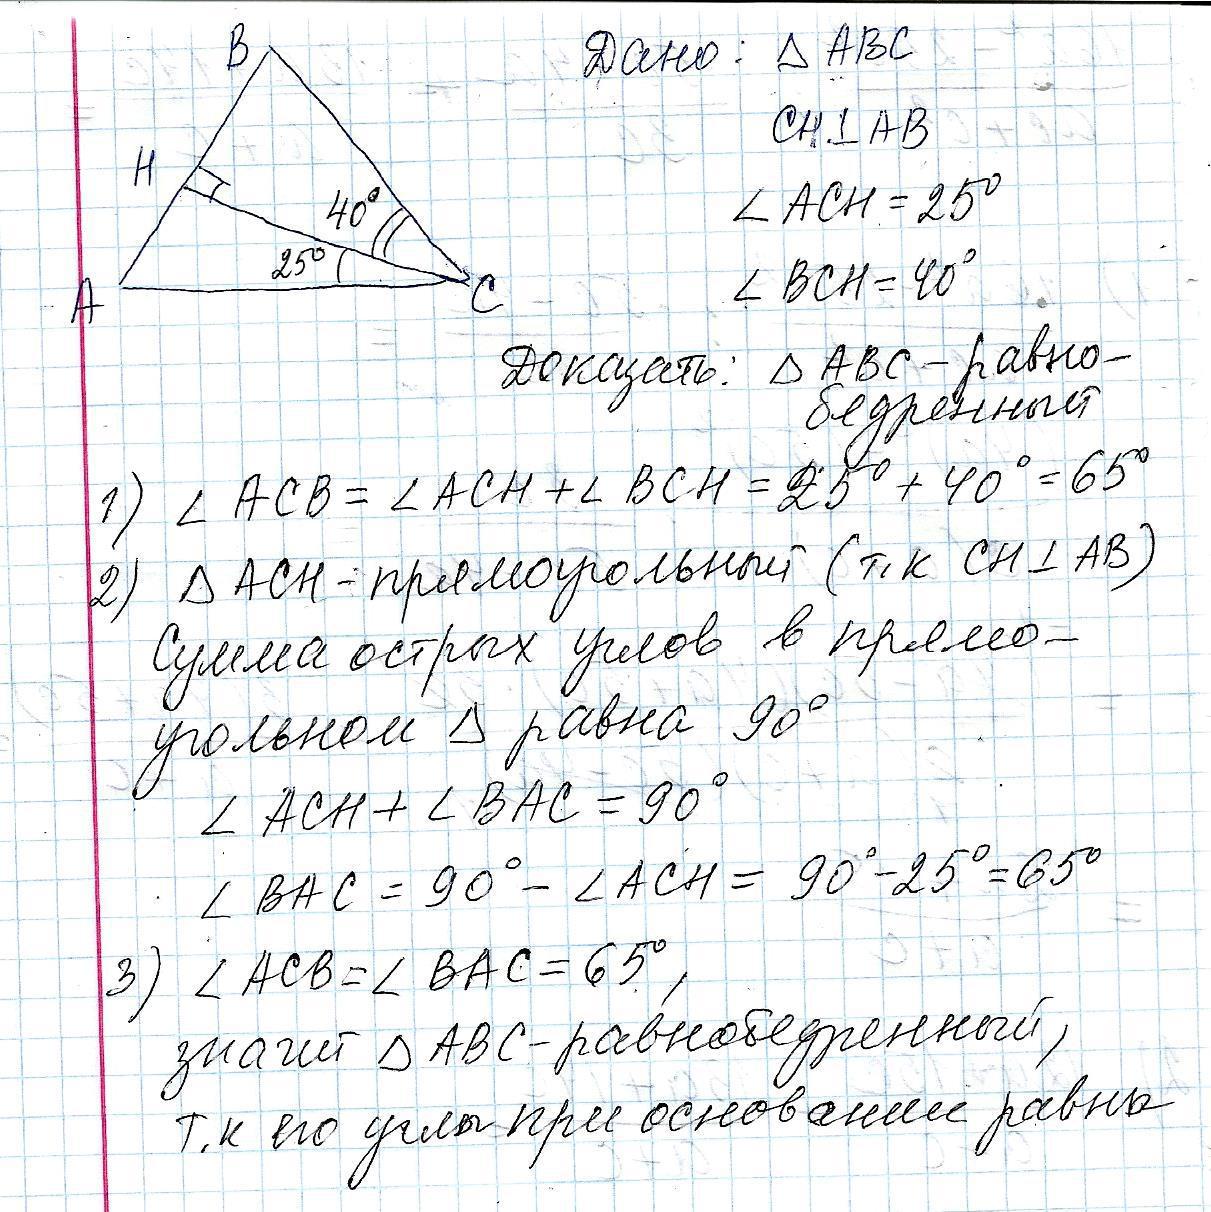 B
H
A
C
40°
25°
Дано: △ ABC
CH⊥AB
∠ ACH = 25°
∠ BCH = 40°
Доказать: △ ABC – равно-
бедренный
1) ∠ ACB = ∠ ACH + ∠ BCH = 25° + 40° = 65°
2) △ ACH – прямоугольный (т.к CH⊥AB)
Сумма острых углов в прямо-
угольном △ равна 90°
∠ ACH + ∠ BAC = 90°
∠ BAC = 90° – ∠ ACH = 90° – 25° = 65°
3) ∠ ACB = ∠ BAC = 65°,
значит △ ABC – равнобедренный,
т.к его углы при основании равны